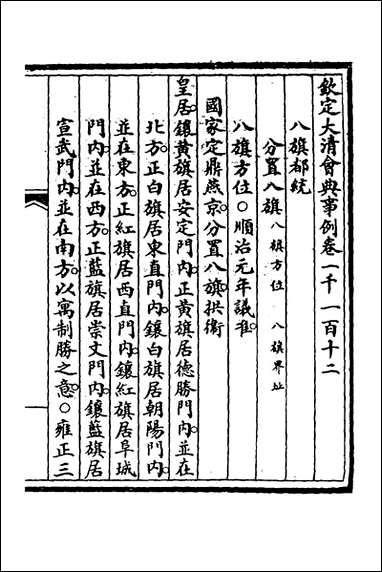 欽定大清會典事例卷一千一百十二
八旗都統
分置八旗八旗方位 八旗界址
八旗方位○順治元年議准
國家定鼎燕京分置八旗拱衛
皇居鑲黃旗居安定門內正黃旗居德勝門內並在
北方正白旗居東直門內鑲白旗居朝陽門內
並在東方正紅旗居西直門內鑲紅旗居阜城
門內並在西方正藍旗居崇文門內鑲藍旗居
宣武門內並在南方以寓制勝之意○雍正三